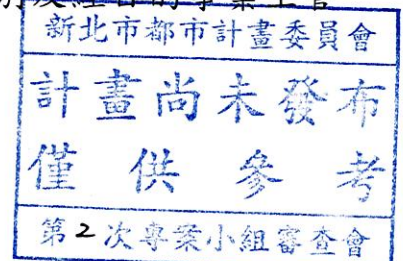 新北市都市計畫委員會
計畫尚未發布
僅供參考
第2次專案小組審查會